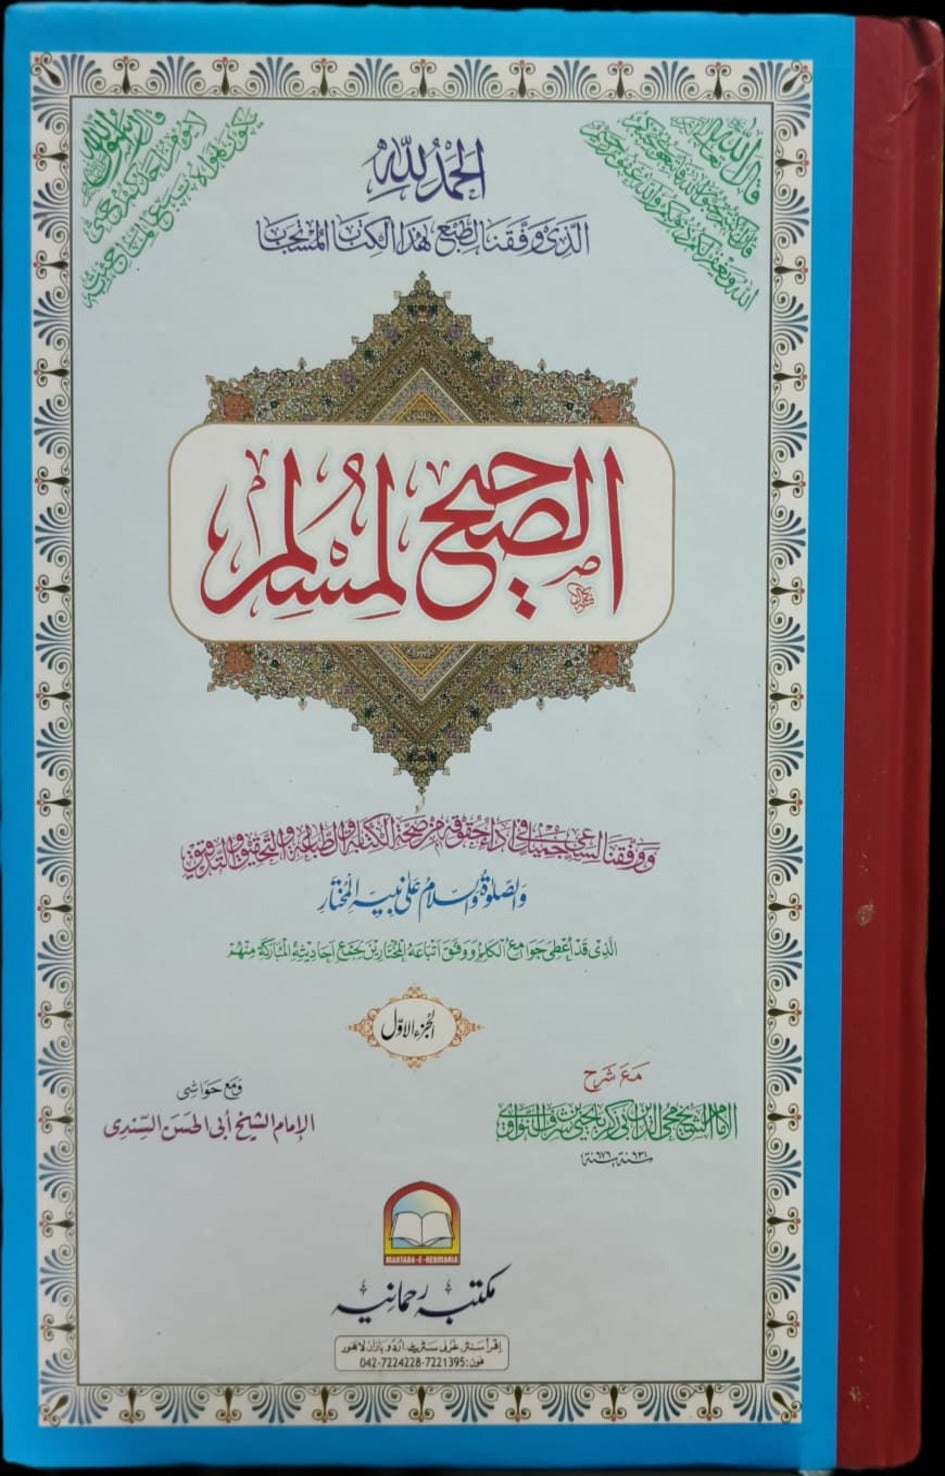 قال الله تعالى
قال رسول الله
الحمد لله
الذى وفقنا لطبع هذا الكتاب المستجاب
الصحيح لمسلم
ووفقنا السعى جميعا فى اداء حقوقه من صحة الكتابة والطباعة والتحقيق والتدقيق
والصلوة والسلام على نبيه المختار
الذى قد أعطى جوامع الكلم ووفق اتباعه المختارين بجمع احاديثه المباركة منهم
الجزء الاول
مع شرح
الامام الشيخ محى الدين ابى زكريا يحيى بن شرف النواوى
٦٣١سنة ٦٧٦سنة
ومع حواشى
الإمام الشيخ أبى الحسن السندى
MAKTABA-E-REHMANIA
مکتبہ رحمانیہ
اقرأ سنٹر غزنی سٹریٹ اردو بازار لاہور
فون: 042-7224228-7221395